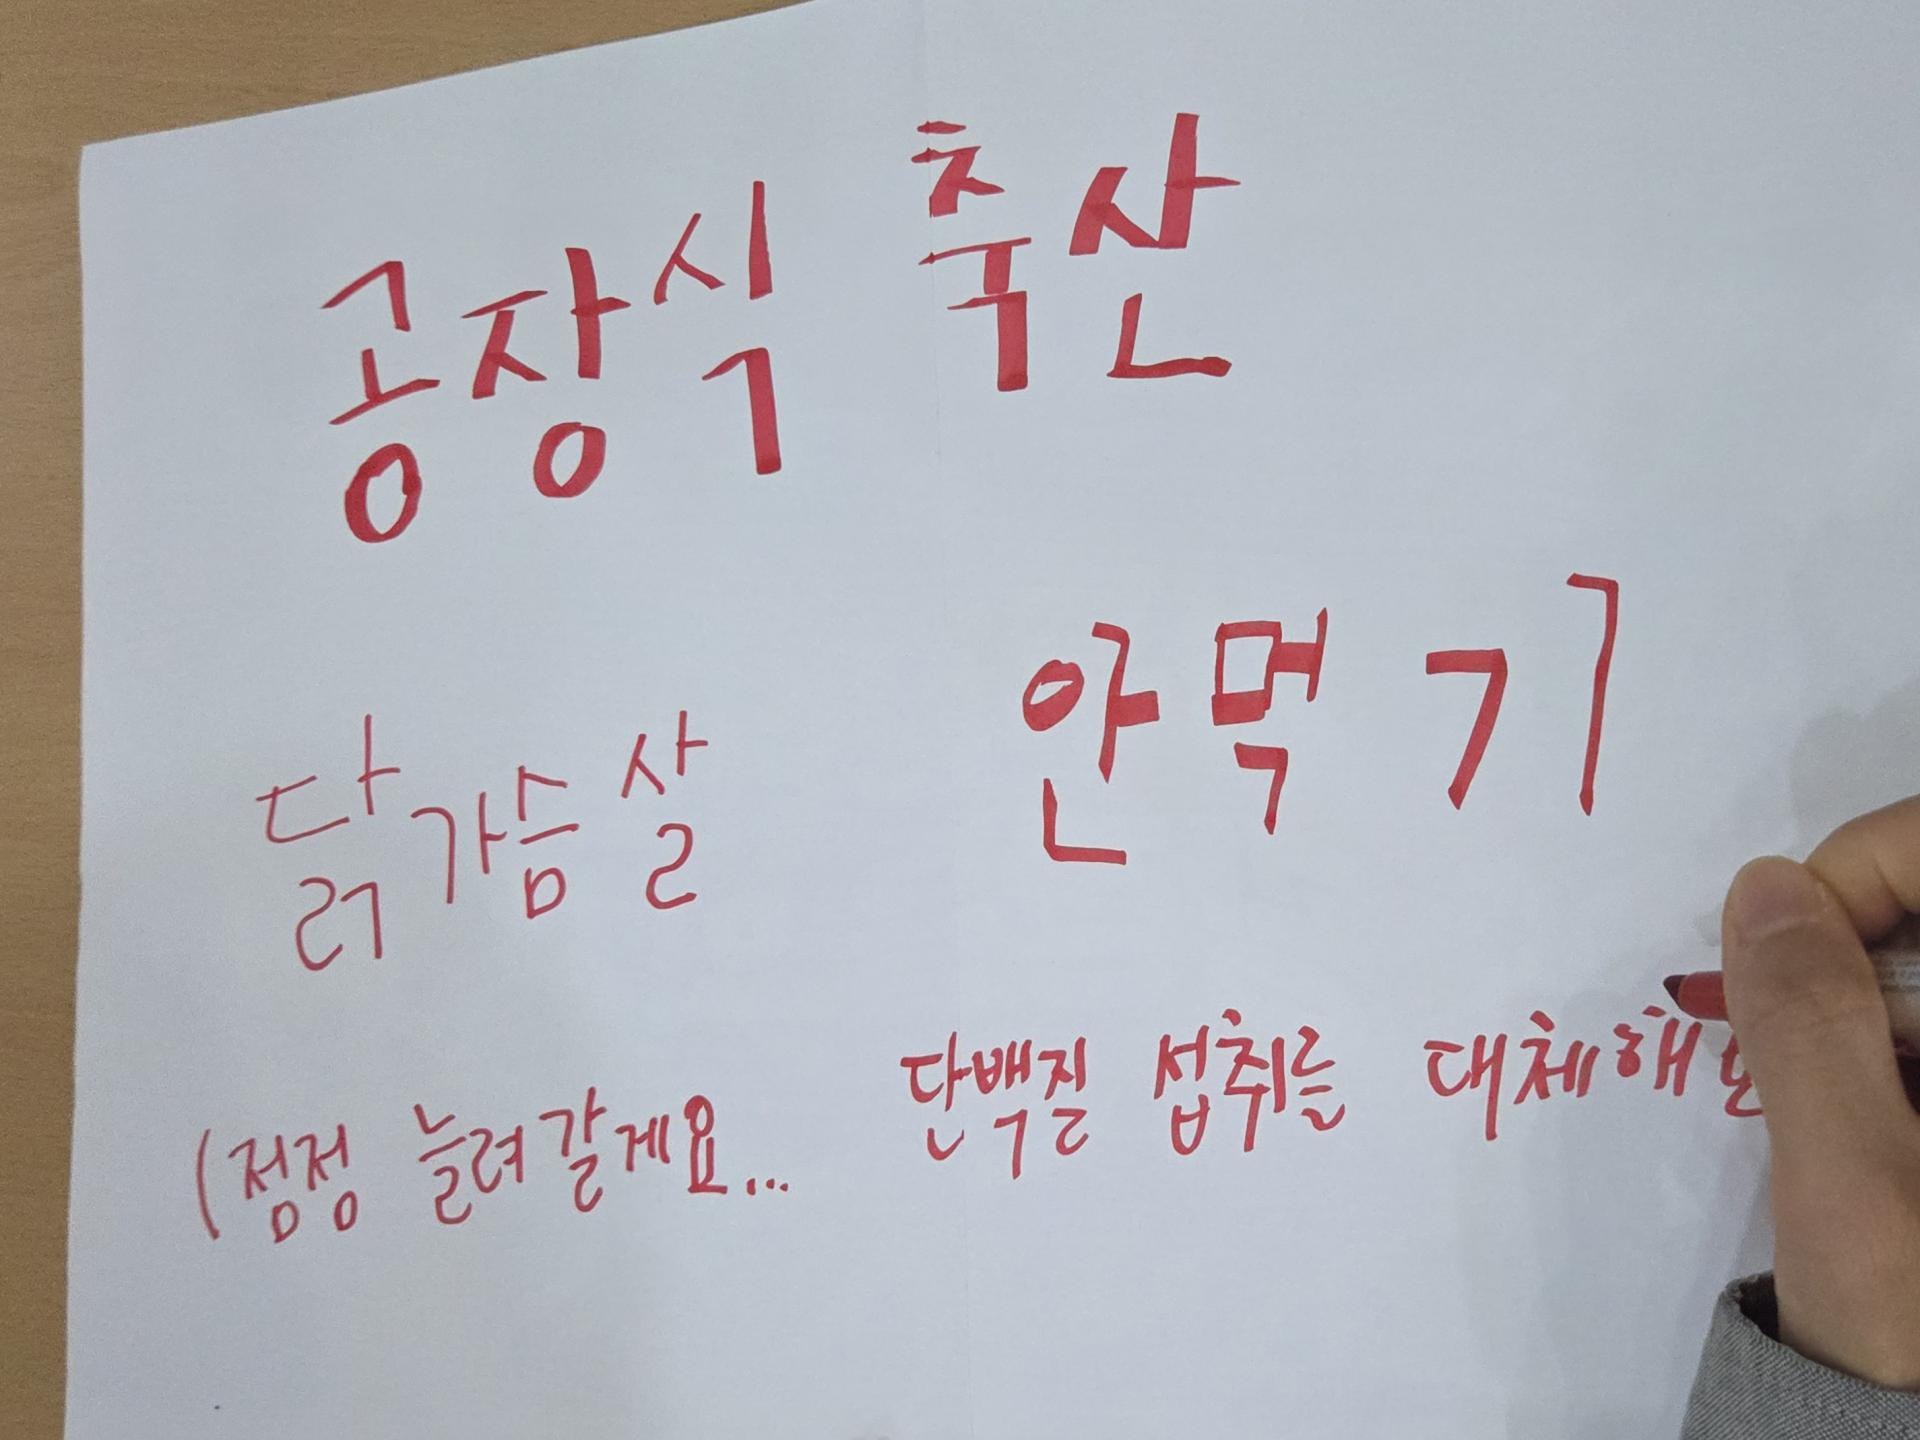 공장식 축산
닭가슴살 안먹기
(점점 늘려갈게요... 단백질 섭취를 대체해